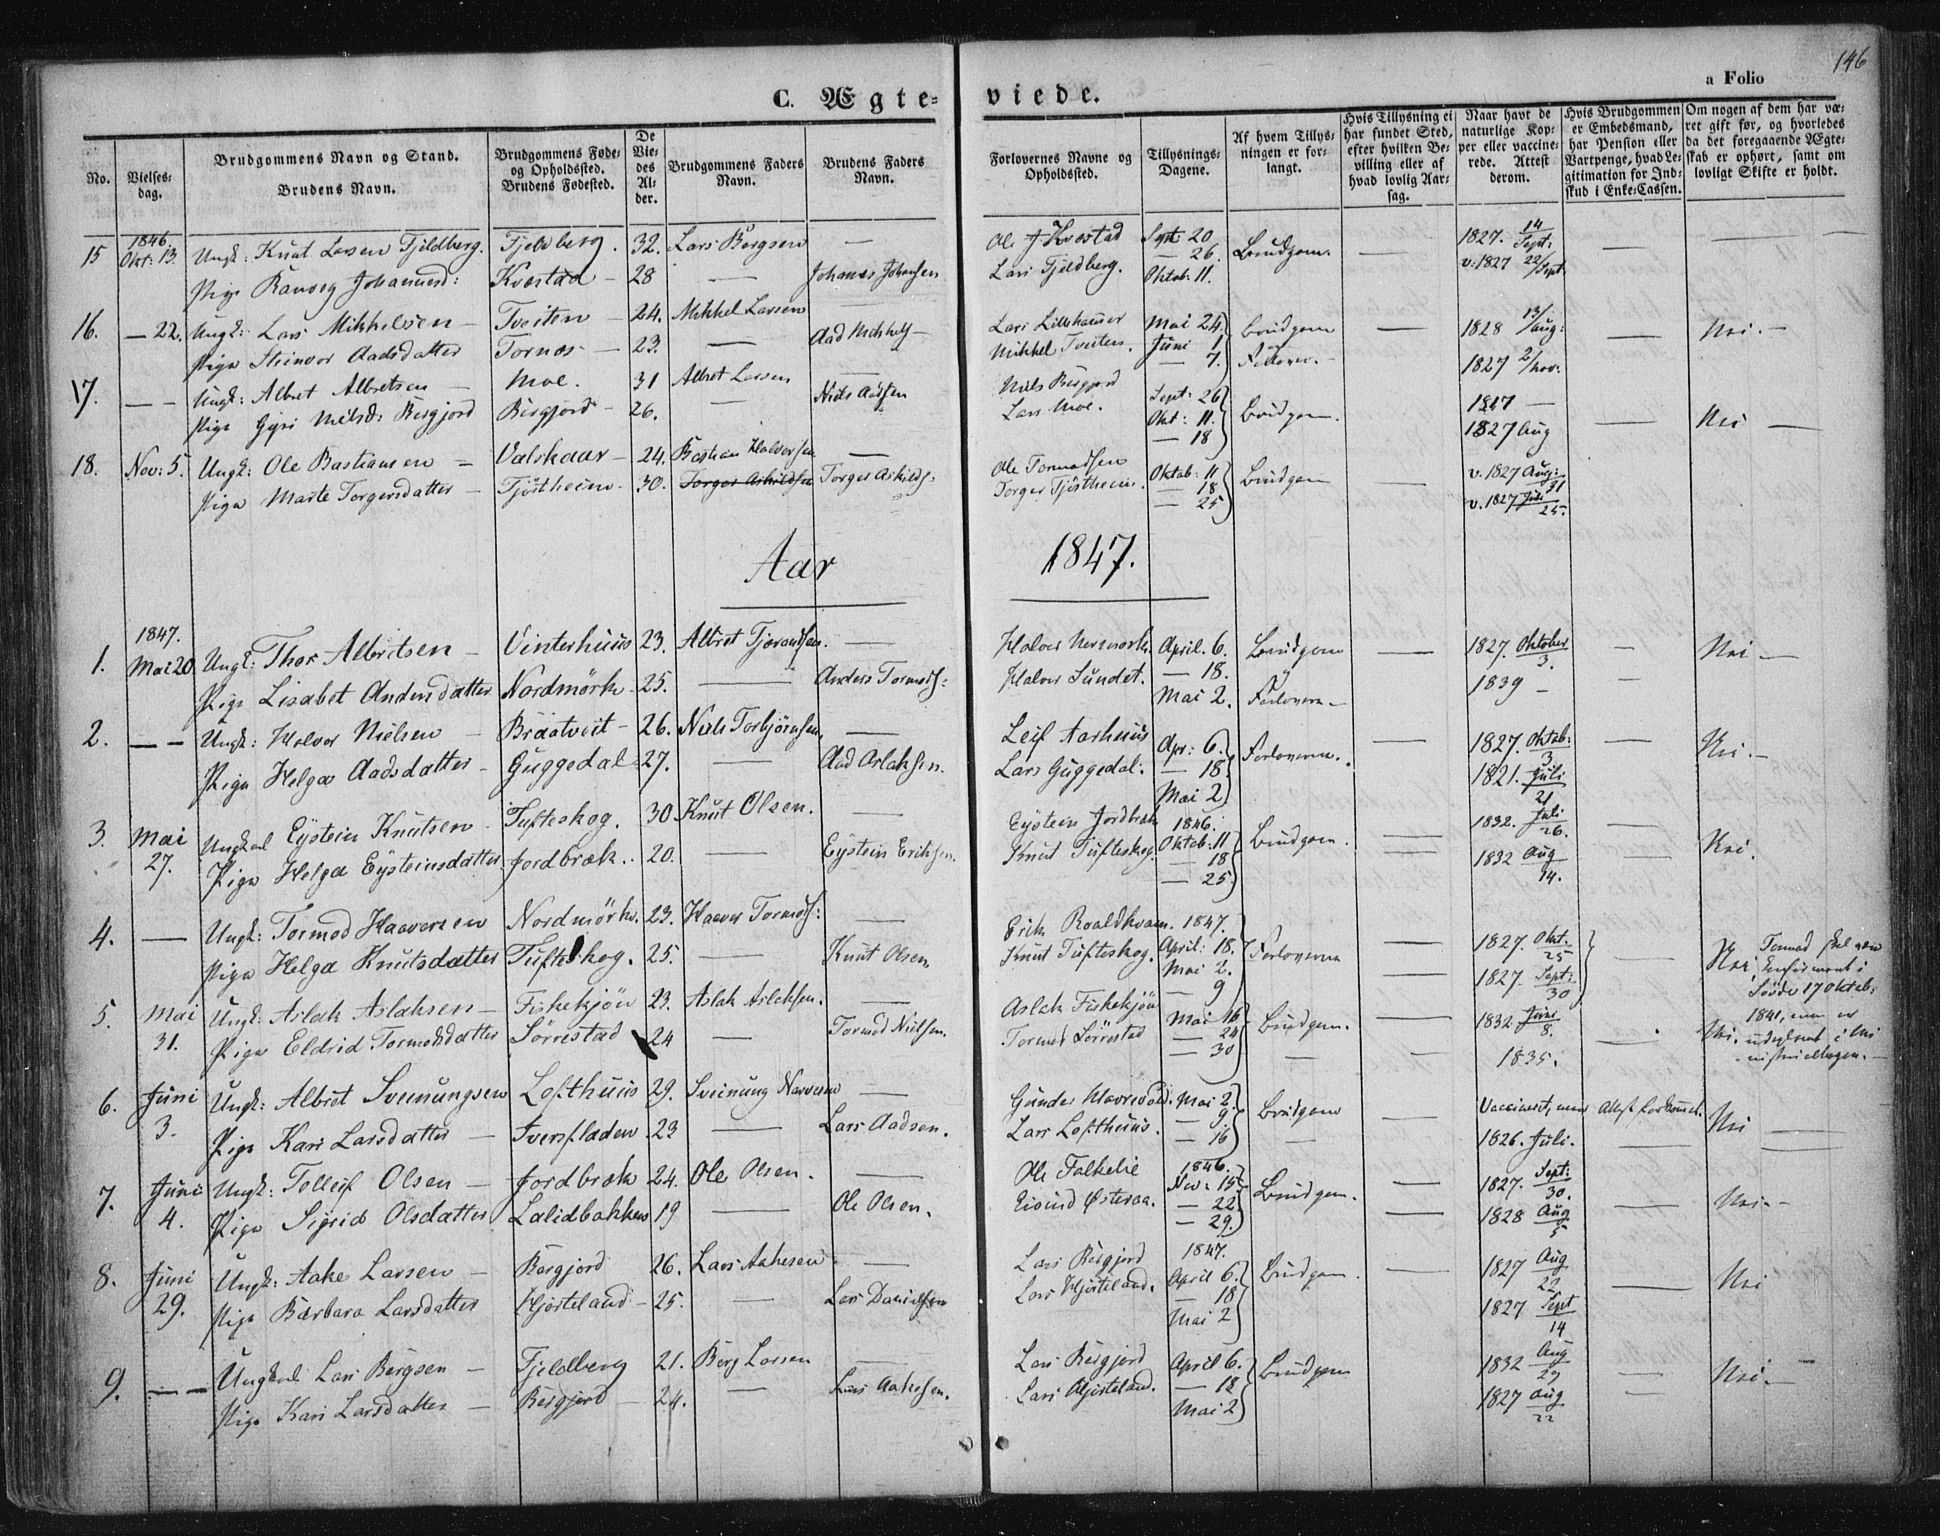 146
C. Ægteviede.
a Folio
No.
Vielsesdag.
Brudgommens Navn og Stand.
Brudens Navn.
Brudgommens Føde- og Opholdssted.
Brudens Fødested.
De Viedes Alder.
Brudgommens Faders Navn.
Brudens Faders Navn.
Forlovernes Navne og Opholdssted.
Tillysnings-Dagene.
Af hvem Tillysningen er forlangt.
Hvis Tillysning ei har fundet Sted, efter hvilken Bevilling eller af hvad lovlig Aarsag.
Naar havt de naturlige Kopper eller vaccinerede. Attest derom.
Hvis Brudgommen er Embedsmand, har Pension eller Vartpenge, hvad Legitimation for Indskud i Enke-Cassen.
Om nogen af dem har været gift før, og hvorledes da det foregaaende Ægteskab er ophørt, samt om lovligt Skifte er holdt.
1846.
15 Okt: 13. Ungk: Knut Larsen Fjeldberg. Fjeldberg. 32. Lars Bergsen — Ole J Kvæstad Sept: 20 Brudgom. — 1827. 14/Sept: —
Pige Ranveg Johannesd: Kvæstad — 28 — Johannes Johansen Lars Fjeldberg. — 26. Oktob. 11. v: 1827 22/Sept.
16. — 22. Ungk: Lars Mikkelsen — Tveiten — 24. Mikkel Larsen — Lars Lillehammer Mai 24. Brudgom — 1828 13/aug: — Nei. —
Pige Steinvor Aadsdatter Tornos — 23. — Aad Mikkels — Mikkel Tveiten. Juni 1 — 7. og Forlover. — 1827 2/Nov:
17. — — Ungk: Albret Albretsen — Moe. 31 Albret Larsen — Niels Bergjord Sept: 26 Brudgom. 1817 — Nei —
Pige Gyri Nielsd: Bergjord Bergjord — 26. — Niels Aadsen Lars Moe. Okt: 11. — 18 1827 Aug
18. Nov: 5. Ungk: Ole Bastiansen — Valskaar — 24. Bastian Halvorsen — Ole Tormodsen Oktob: 11 Brudgom — v. 1827 Aug: 31
Pige Marte Torgersdatter — Tjøstheim — 30. Torger Askildsen Torger Askilds. Torger Tjøstheim. — 18 — 25 v. 1827 Juli 25.
Aar 1847.
1847.
1. Mai 20 Ungk: Thor Albretsen — Vinterhuus 23. Albret Tjerandsen. — Halvor Nordmork. April. 6. Brudgom — 1827. Oktober 3. — Nei —
Pige Lisabet Andersdatter Nordmörk — 25. — Anders Tormods: Halvor Sundet. — 18. Mai 2. og Forlovern — 1839 —
2. — — Ungk: Halvor Nielsen — Braatveit — 26. Niels Torbjørnsen — Leif Aarhuus Apr: 6. Forloverne. — 1827. Oktob: 3 — Nei. —
Pige Helga Aadsdatter — Guggedal 27. — Aad Aslaksen. Lars Guggedal. — 18 Mai 2 1821. Juli 21
3. Mai 27. Ungkarl Eystein Knutsen — Tufteskog. 30 Knut Olsen. — Eystein Jordbræk 1846. Oktob: 11 Brudgom. — 1832. Juli 26. — Nei.
Pige Helga Eysteinsdatter Jordbræk. 20. — Eystein Eriksen. Knut Tufteskog. — 18 — 25. 1832 Aug 14.
4. — Ungk: Tormod Haaversen Nordmörk. 23. Haaver Tormods: — Erik Roaldkvam. 1847. April: 18. Forloverne — 1827. Okt. 25 Nei Tormod skal være
Pige Helga Knutsdatter Tufteskog. 25. — Knut Olsen Knut Tufteskog. Mai 2. — 9 — 1827. Sept: 30 konfirmeret i
5. Mai 31. Ungk: Aslak Aslaksen — Fiskekjön 23. Aslak Aslaksen. — Aslak Fiskekjön Mai 16 Brudgom. — 1832 Juni 8. — Nei. Søvde 17 Oktob.
Pige Eldrid Tormodsdatter Sörrestad 24 — Tormod Nielsen. Tormod Sörrestad — 24 — 30 — 1835. 1841, men er
udeglemt i Mi
nisterialbogen. —
6. Juni 3. Ungk: Albret Sveinungsen Lofthuus 29. Sveinung — Gunder Mai 2. Brudgom — Vaccineret, men Attest forkommet. Nei
Pige Kari Larsdatter — Sversfladen 23 — Lars Aadsen. Lars Lofthuus. — 9 — 16 — 1826. Juli. —
7. Juni 4. Ungk: Tolleif Olsen — Jordbræk 24. Ole Olsen. — Ole Falkelie 1846. Nov: 15 Brudgom. — 1827. Sept: 30. — Nei. —
Pige Sigrid Olsdatter Lalidbakken 19 — Ole Olsen. Eivind Østeraa. — 22 — 29. — 1828 Aug 5
8. Juni 29. Ungk: Aake Larsen — Bergjord 26. Lars Aakesen — Lars Bergjord 1847. April 6. Brudgom. — 1827 Aug 22 — Nei
Pige Barbara Larsdatter Hjorteland — 25. — Lars Danielsen Lars Hjorteland. — 18 Mai 2 1827 Sept 14
9. — — Ungkarl Lars Bergsen — Fjeldberg 21. Berg Larsen — Lars Bergjord April 6. Brudgom 1832 Aug 29 — Nei. —
Pige Kari Larsdatter — Bergjord — 24. — Lars Aakesen. Lars Hjorteland. — 18 Mai 2 1827 Aug 22